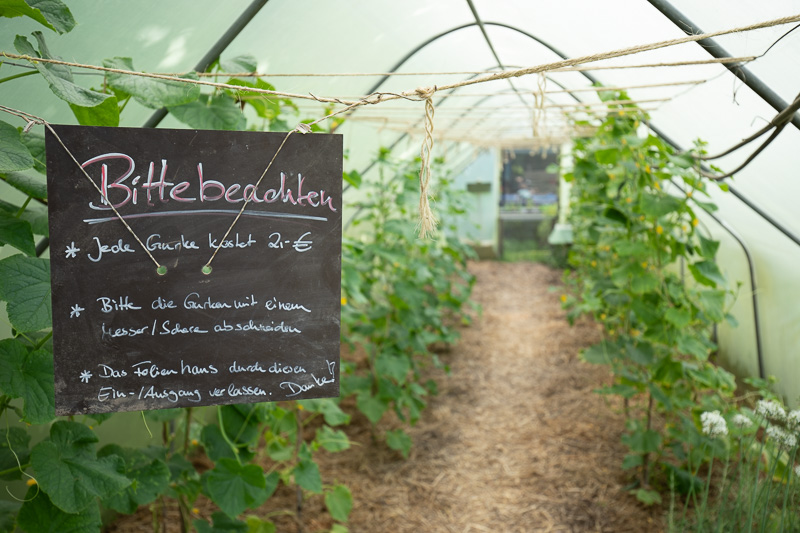 Bitte beachten
* Jede Gurke kostet 2,- €
* Bitte die Gurken mit einem
Messer/Schere abschneiden
* Das Folienhaus durch diesen
Ein-/Ausgang verlassen. Danke!